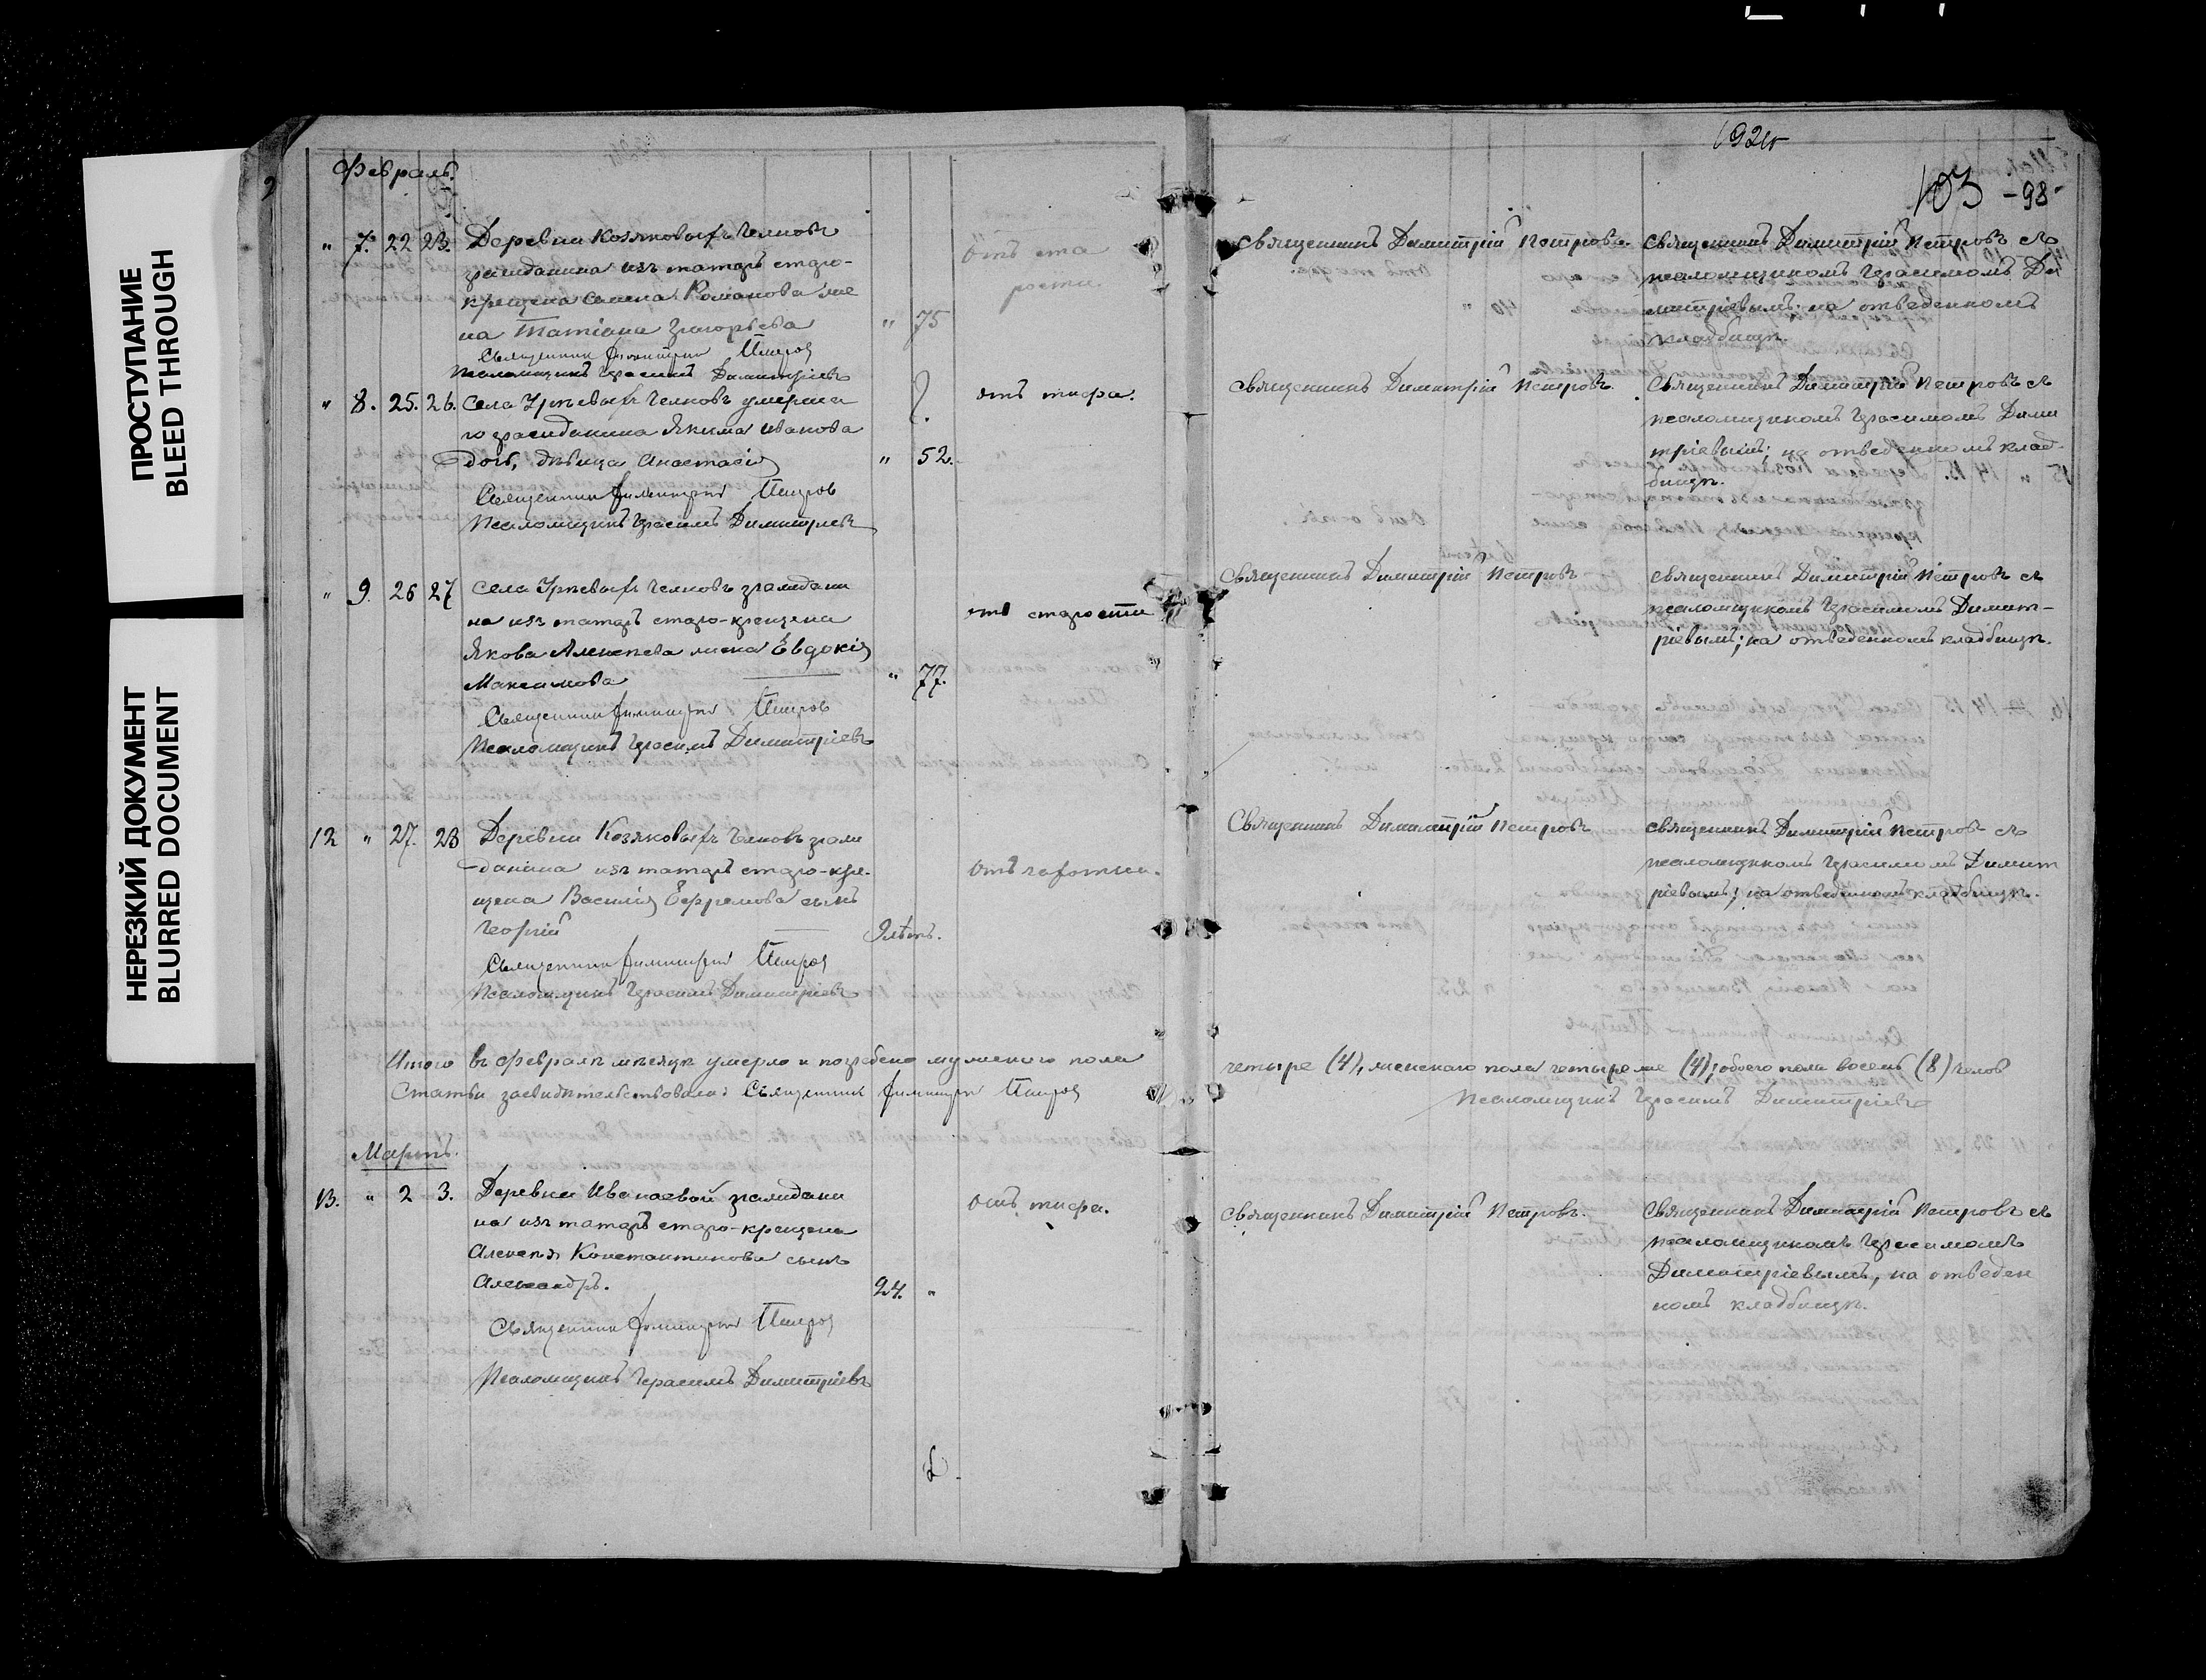 ПРОСТУПАНИЕ
BLEED THROUGH
НЕРЕЗКИЙ ДОКУМЕНТ
BLURRED DOCUMENT
192
103 -98-
Февраль.
" 7. 22 23. Деревни Козяковыхъ Челновъ
гражданина изъ татаръ старо-
крещена Семена Романова же
на Татіана Григорьева " 75
отъ ста
рости
Священникъ Димитрій Петровъ
Псаломщикъ Герасимъ Димитріевъ
Священникъ Димитрій Петровъ.
Священникъ Димитрій Петровъ съ
псаломщикомъ Герасимомъ Ди
митріевымъ; на отведенномъ
кладбищѣ.
" 8. 25. 26. Села Урѣевыхъ Челновъ умерша
го гражданина Якима Иванова
дочь, дѣвица Анастасія " 52.
отъ тифа.
Священникъ Димитрій Петровъ
Псаломщикъ Герасимъ Димитріевъ
Священникъ Димитрій Петровъ.
Священникъ Димитрій Петровъ съ
псаломщикомъ Герасимомъ Дими
тріевымъ; на отведенномъ клад-
бищѣ.
" 9. 26 27 Села Урѣевыхъ Челновъ граждани
на изъ татаръ старо-крещена
Якова Алексѣева жена Евдокія
Максимова " 77.
отъ старости
Священникъ Димитрій Петровъ
Псаломщикъ Герасимъ Димитріевъ
Священникъ Димитрій Петровъ
Священникъ Димитрій Петровъ съ
псаломщикомъ Герасимомъ Димит-
ріевымъ; на отведенномъ кладбищѣ.
12 " 27. 28 Деревни Козяковыхъ Челновъ граж
данина изъ татаръ старо-кре-
щена Василія Ефремова сынъ
Георгій 9 лѣтъ.
отъ чахотки.
Священникъ Димитрій Петровъ
Псаломщикъ Герасимъ Димитріевъ
Священникъ Димитрій Петровъ
Священникъ Димитрій Петровъ съ
псаломщикомъ Герасимомъ Димит
ріевымъ; на отведенномъ кладбищѣ.
Итого въ февралѣ мѣсяцѣ умерло и погребено мужескаго пола
четыре (4), женскаго пола четыре же (4); обоего пола восемь (8) челов
Статьи засвидѣтельствовали: Священникъ Димитрій Петровъ
Псаломщикъ Герасимъ Димитріевъ
Мартъ.
13. " 2 3. Деревни Иванаевой граждани
на изъ татаръ старо-крещена
Алексѣя Константинова сынъ
Александръ. 24. "
отъ тифа.
Священникъ Димитрій Петровъ
Псаломщикъ Герасимъ Димитріевъ
Священникъ Димитрій Петровъ.
Священникъ Димитрій Петровъ съ
псаломщикомъ Герасимомъ
Димитріевымъ, на отведен
номъ кладбищѣ.